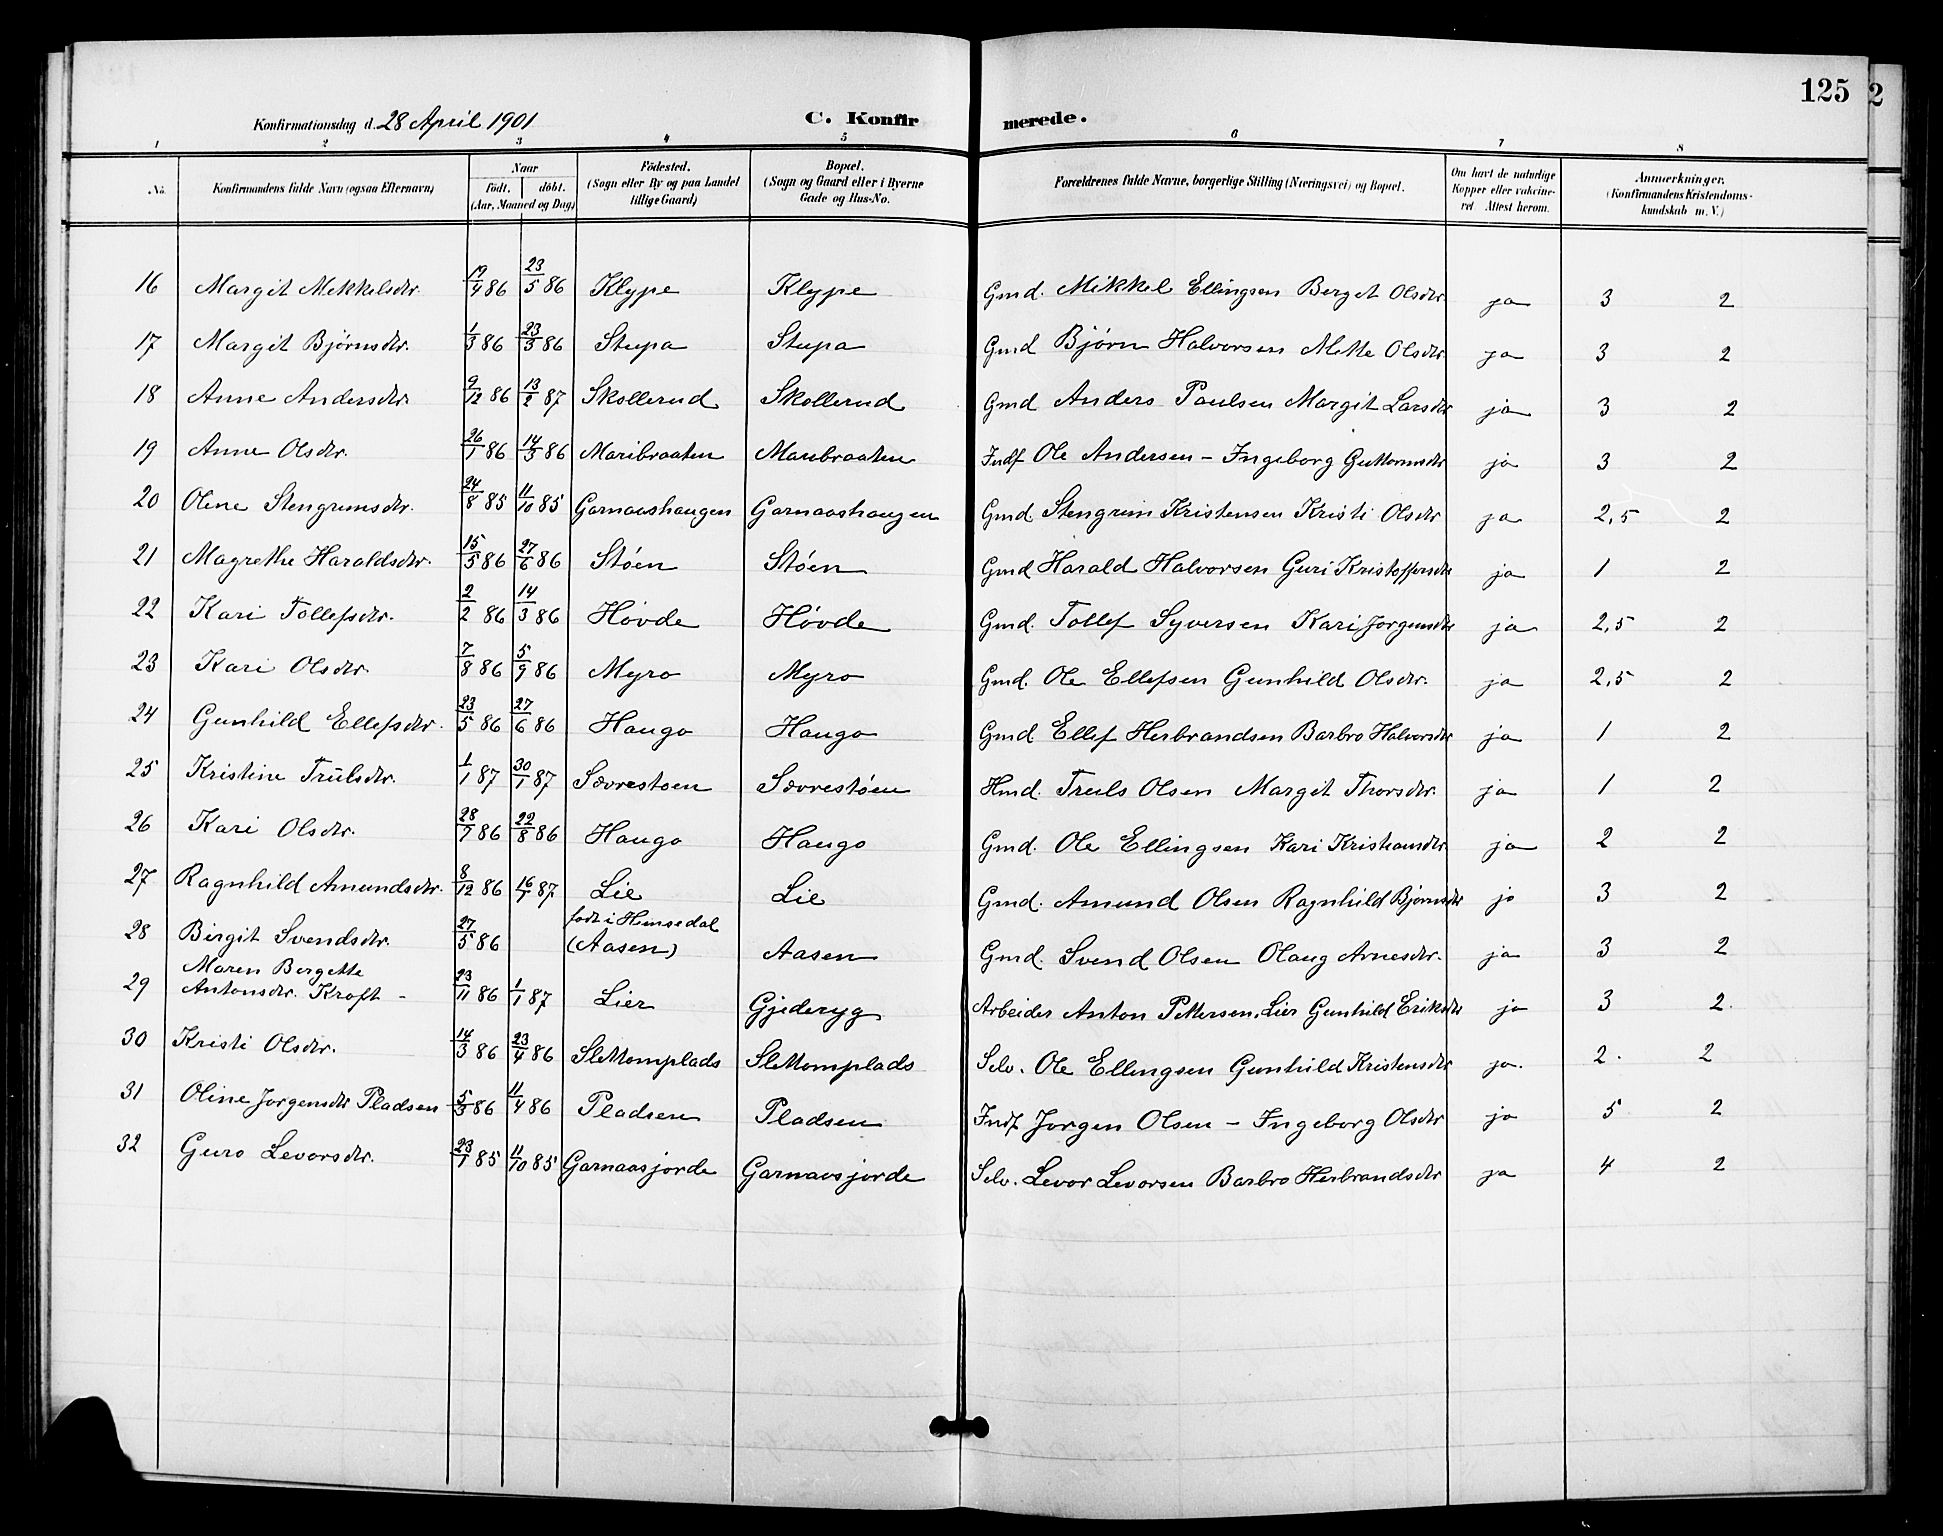 125
2
Konfirmationsdag d. 28 April 1901
C. Konfir merede.
1 2 3 4 5 6 7 8
No. Konfirmandens fulde Navn (ogsaa Efternavn) Naar født. døbt. (Aar, Maaned og Dag) Födested. (Sogn eller By og paa Landet tillige Gaard) Bopæl. (Sogn og Gaard eller i Byerne Gade og Hus-No. Forældrenes fulde Navne, borgerlige Stilling (Næringsvei) og Bopæl. Om havt de naturlige Kopper eller vakcineret Attest herom. Anmerkninger. (Konfirmandens Kristendomskundskab m. V.)
16 Margit Mekkelsdtr. 19/4 86 23/5 86 Klype Klype Gmd. Mikkel Ellingsen Berget Olsdtr. ja 3 2
17 Margit Bjørnsdtr. 1/3 86 23/3 86 Stupa Stupa Gmd Bjørn Halvorsen Mette Olsdtr. ja 3 2
18 Anne Andersdtr. 9/12 86 13/2 87 Skollerud Skollerud Gmd Anders Paulsen Margit Larsdtr ja 3 2
19 Anne Olsdtr. 26/1 86 14/3 86 Maribraaten Maribraaten Indf Ole Andersen - Ingeborg Guttormsdtr ja 3 2
20 Olene Stengrimsdtr. 24/8 85 11/10 85 Garnaashaugen Garnaashaugen Gmd Stengrim Kristensen Kristi Olsdtr ja 2,5 2
21 Magrethe Haraldsdtr. 15/5 86 27/6 86 Støen Støen Gmd Harald Halvorsen Guri Kristoffersdtr ja 1 2
22 Kari Tollefsdtr. 2/2 86 14/3 86 Høvde Høvde Gmd. Tollef Syversen Kari Jorgensdtr ja 2,5 2
23 Kari Olsdtr. 7/8 86 5/9 86 Myro Myro Gmd. Ole Ellefsen Gunhild Olsdtr. ja 2,5 2
24 Gunhild Ellefsdtr. 23/5 86 27/6 86 Haugo Haugo Gmd Ellef Herbrandsen Barbro Halvorsdtr ja 1 2
25 Kristine Trulsdtr. 1/1 87 30/1 87 Sævrestoen Sævrestøen Hmd. Truls Olsen Margit Thorsdtr. ja 1 2
26 Kari Olsdtr. 28/7 86 22/8 86 Haugo Haugo Gmd. Ole Ellingsen Kari Kristiansdtr. ja 2 2
27 Ragnhild Amundsdtr. 8/12 86 16/1 87 Lie Lie Gmd. Amund Olsen Ragnhild Bjørnsdtr ja 3 2
28 Birgit Svendsdtr. 27/5 86 født i Hemsedal (Aasen) Aasen Gmd. Svend Olsen Olaug Arnesdtr. ja 3 2
29 Maren Bergette Antonsdtr. Kroft - 23/11 86 1/1 87 Lier Gjederyg Arbeider Anton Pettersen, Lier Gunhild Eriksdtr ja 3 2.
30 Kristi Olsdtr. 14/3 86 23/4 86 Slettomplads Slettomplads Selv. Ole Ellingsen Gunhild Kristensdtr ja. 2. 2
31 Oline Jorgensdtr Pladsen 5/3 86 11/4 86 Pladsen Pladsen Indf Jorgen Olsen - Ingeborg Olsdtr ja 5 2
32 Guro Levorsdtr. 23/1 85 11/10 85 Garnaasjorde Garnaasjorde Selv. Levor Levorsen Barbro Herbrandsdtr ja 4 2